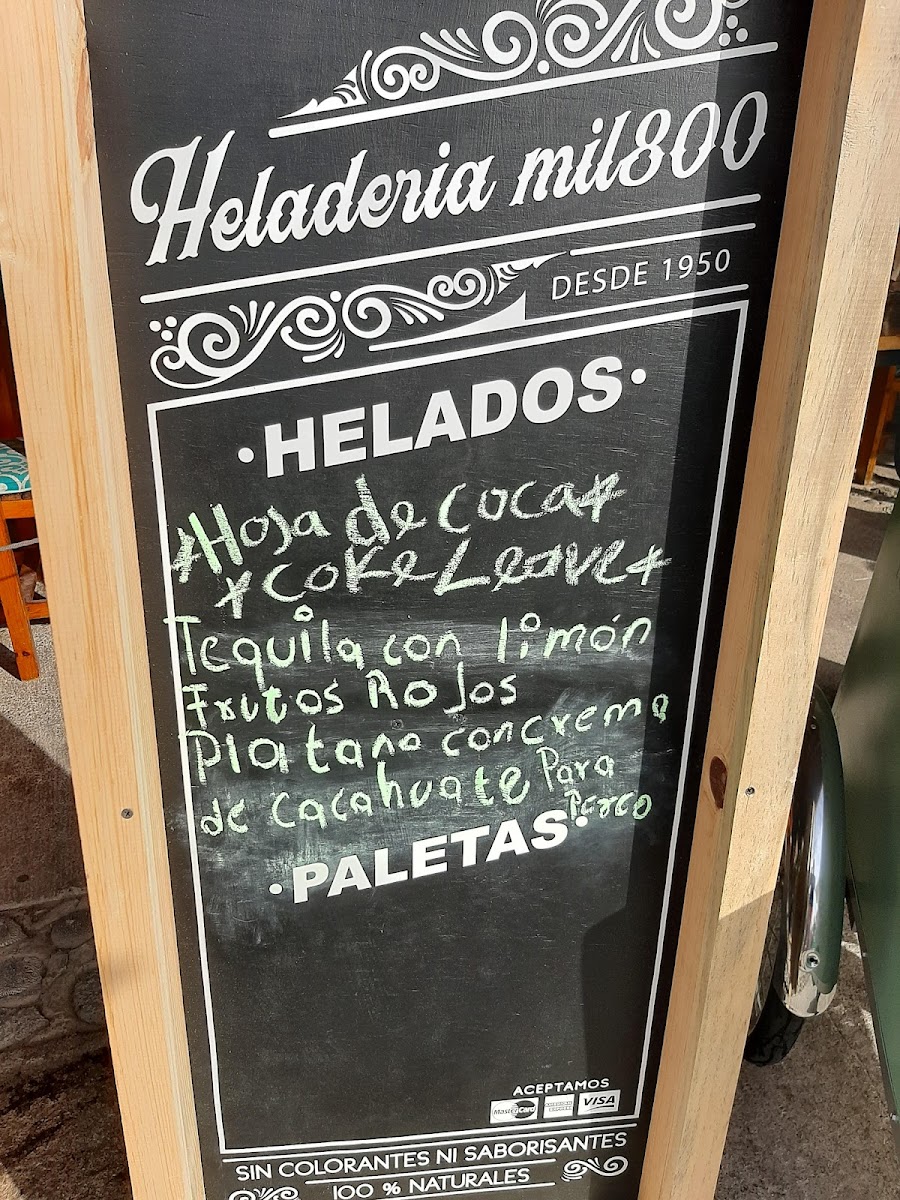 Heladeria mil800
DESDE 1950
·HELADOS·
*Hoja de coca*
*Coke Leave*
Tequila con limón
Frutos Rojos
Platano con crema
de cacahuate Para
Perco
·PALETAS·
ACEPTAMOS
MasterCard AMERICAN EXPRESS VISA
SIN COLORANTES NI SABORISANTES
100 % NATURALES